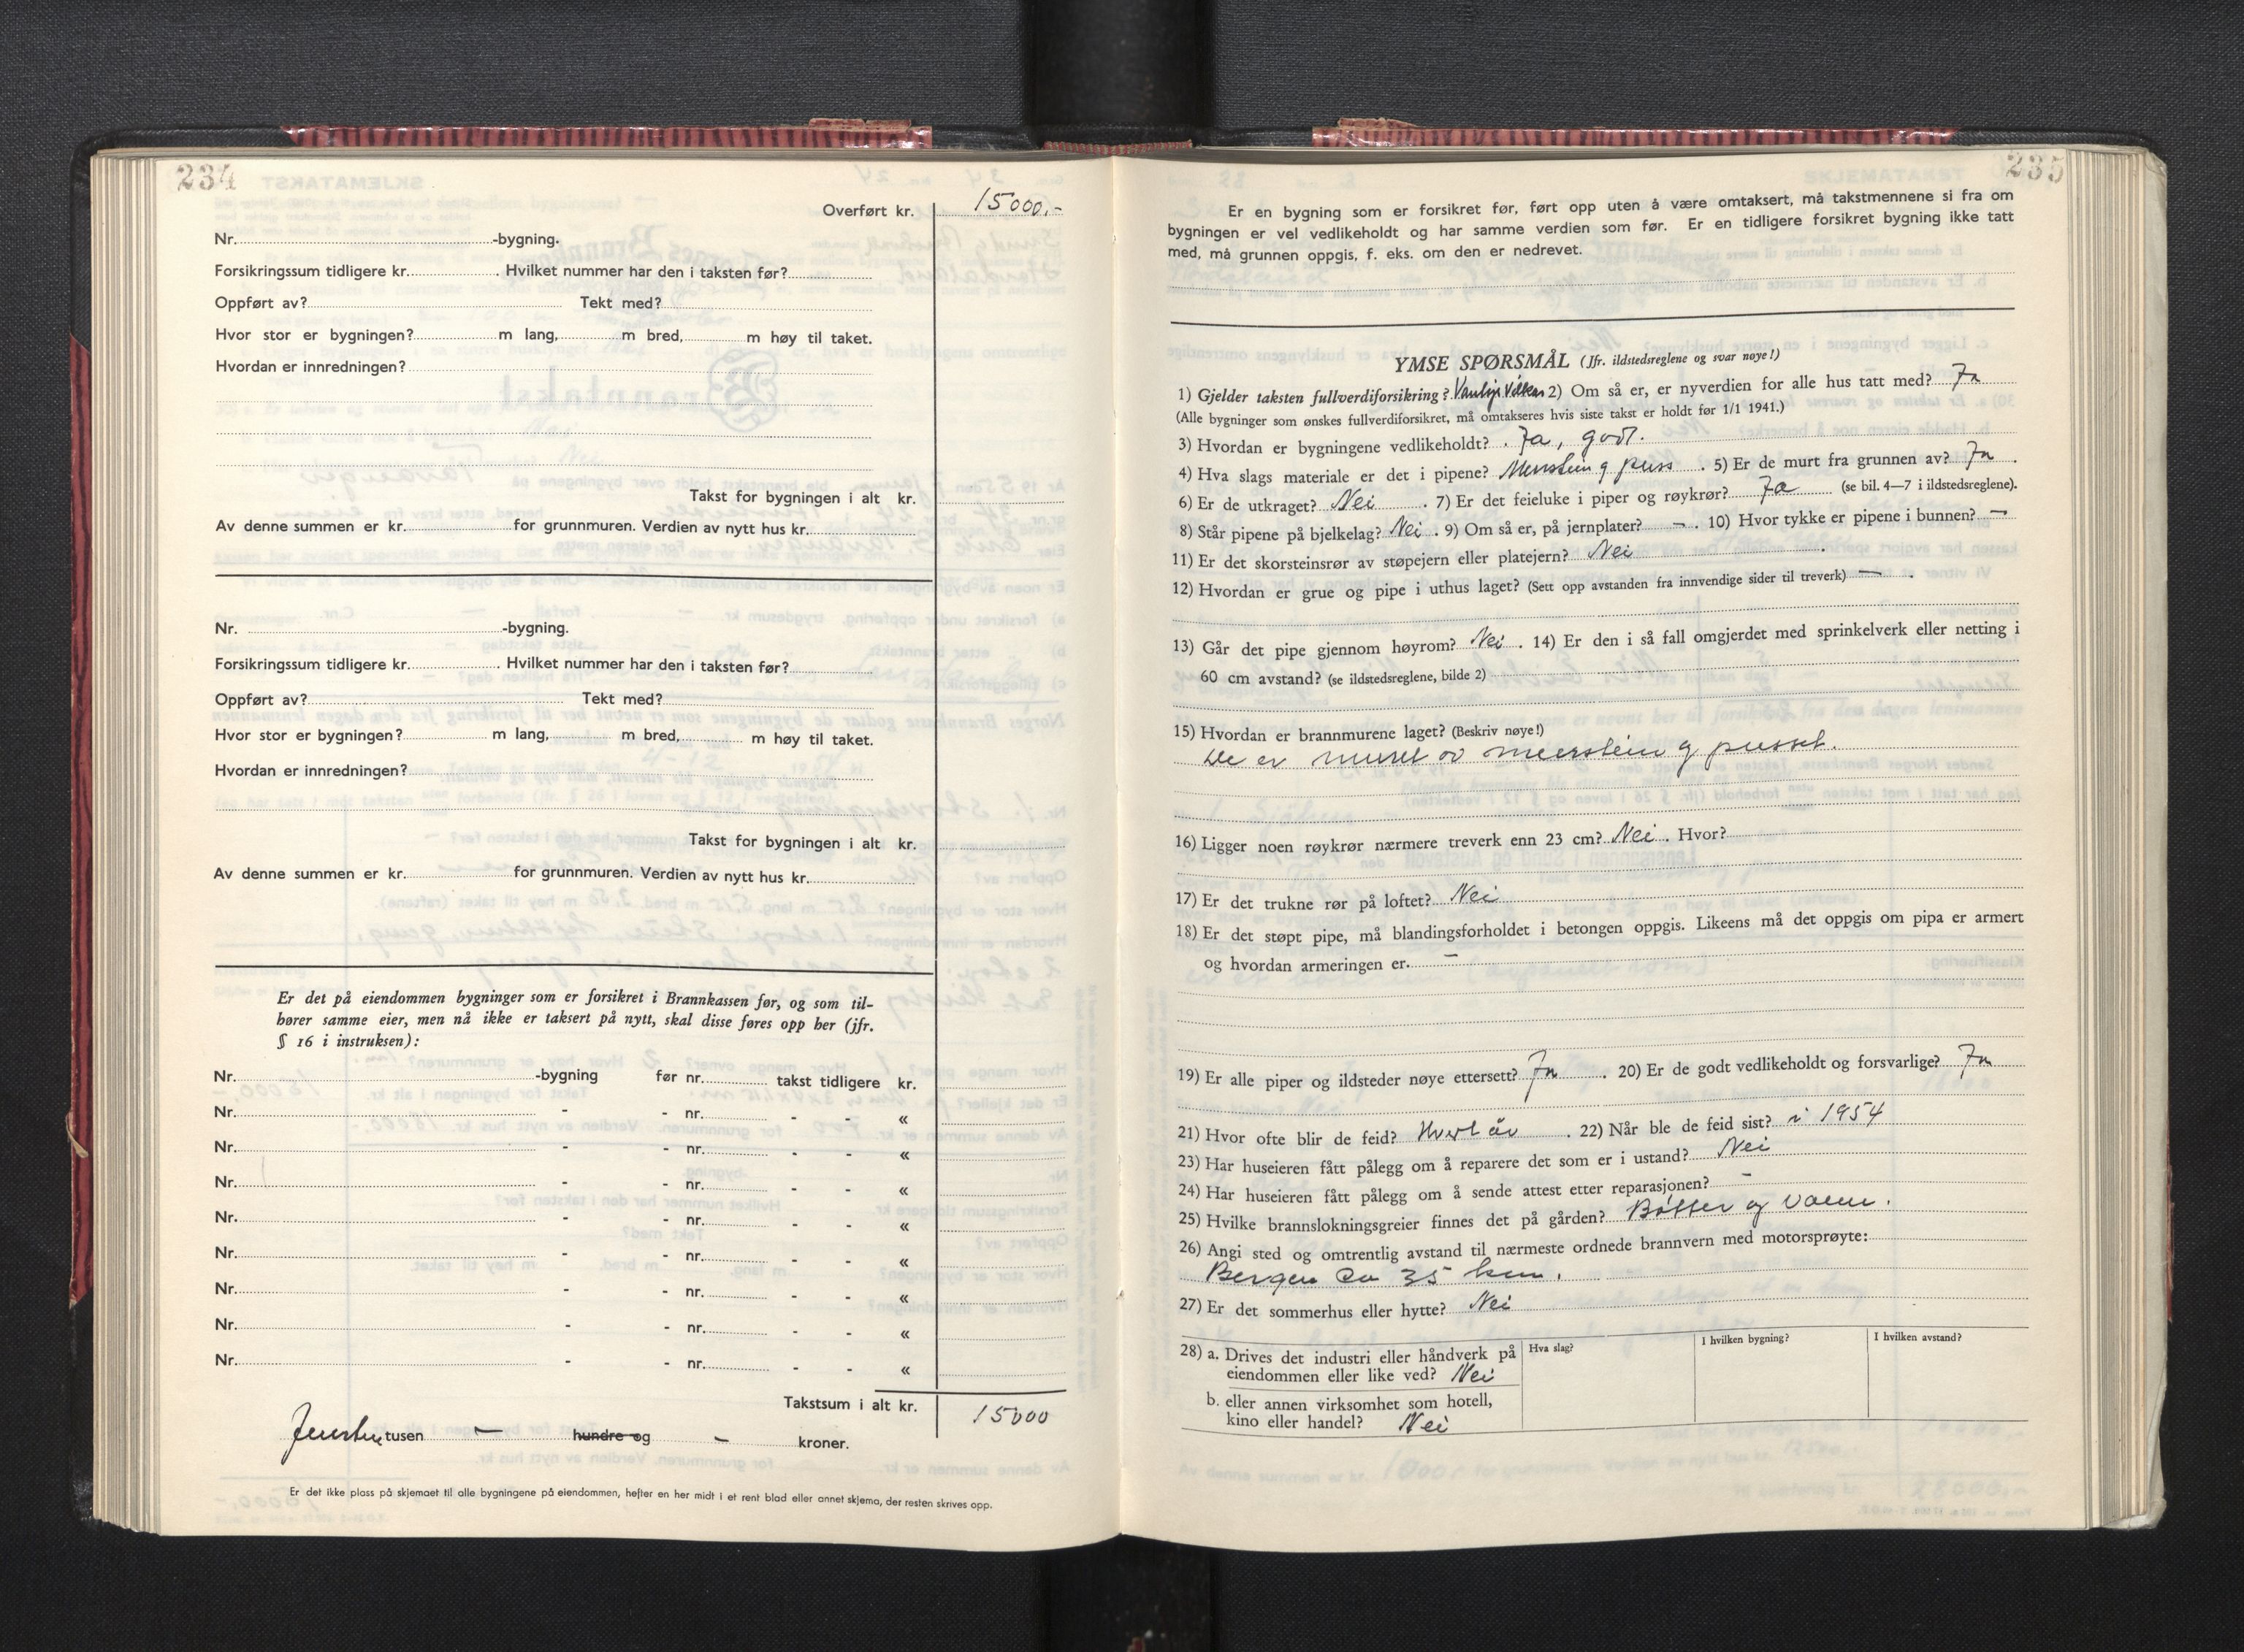 234
Overført kr. 15000,-
Nr. -bygning.
Forsikringssum tidligere kr. . Hvilket nummer har den i taksten før?
Oppført av? Tekt med?
Hvor stor er bygningen? m lang, m bred, m høy til taket.
Hvordan er innredningen?
Takst for bygningen i alt kr.
Av denne summen er kr. for grunnmuren. Verdien av nytt hus kr.
Nr. -bygning.
Forsikringssum tidligere kr. . Hvilket nummer har den i taksten før?
Oppført av? Tekt med?
Hvor stor er bygningen? m lang, m bred, m høy til taket.
Hvordan er innredningen?
Takst for bygningen i alt kr.
Av denne summen er kr. for grunnmuren. Verdien av nytt hus kr.
Er det på eiendommen bygninger som er forsikret i Brannkassen før, og som til-
hører samme eier, men nå ikke er taksert på nytt, skal disse føres opp her (jfr.
§ 16 i instruksen):
Nr. -bygning før nr. takst tidligere kr.
Nr. - - nr. - - «
Nr. - - nr. - - «
Nr. - - nr. - - «
Nr. - - nr. - - «
Nr. - - nr. - - «
Nr. - - nr. - - «
Nr. - - nr. - - «
Nr. - - nr. - - «
Takstsum i alt kr. 15000
tusen — hundre og — kroner.
Er det ikke plass på skjemaet til alle bygningene på eiendommen, hefter en her midt i et rent blad eller annet skjema, der resten skrives opp.
235
Er en bygning som er forsikret før, ført opp uten å være omtaksert, må takstmennene si fra om
bygningen er vel vedlikeholdt og har samme verdien som før. Er en tidligere forsikret bygning ikke tatt
med, må grunnen oppgis, f. eks. om den er nedrevet.
YMSE SPØRSMÅL (Jfr. ildstedsreglene og svar nøye!)
1) Gjelder taksten fullverdiforsikring? Vanlige Vilkår 2) Om så er, er nyverdien for alle hus tatt med? Ja
(Alle bygninger som ønskes fullverdiforsikret, må omtakseres hvis siste takst er holdt før 1/1 1941.)
3) Hvordan er bygningene vedlikeholdt? Ja, godt.
4) Hva slags materiale er det i pipene? Murstein og puss . 5) Er de murt fra grunnen av? Ja .
6) Er de utkraget? Nei . 7) Er det feieluke i piper og røykrør? Ja (se bil. 4—7 i ildstedsreglene).
8) Står pipene på bjelkelag? Nei . 9) Om så er, på jernplater? — . 10) Hvor tykke er pipene i bunnen? —
11) Er det skorsteinsrør av støpejern eller platejern? Nei .
12) Hvordan er grue og pipe i uthus laget? (Sett opp avstanden fra innvendige sider til treverk) — .
13) Går det pipe gjennom høyrom? Nei . 14) Er den i så fall omgjerdet med sprinkelverk eller netting i
60 cm avstand? (se ildstedsreglene, bilde 2)
15) Hvordan er brannmurene laget? (Beskriv nøye!)
De er muret av murstein og pusset.
16) Ligger noen røykrør nærmere treverk enn 23 cm? Nei . Hvor?
17) Er det trukne rør på loftet? Nei
18) Er det støpt pipe, må blandingsforholdet i betongen oppgis. Likeens må det oppgis om pipa er armert
og hvordan armeringen er. —
19) Er alle piper og ildsteder nøye ettersett? Ja . 20) Er de godt vedlikeholdt og forsvarlige? Ja
21) Hvor ofte blir de feid? Hvert år . 22) Når ble de feid sist? i 1954
23) Har huseieren fått pålegg om å reparere det som er i ustand? Nei
24) Har huseieren fått pålegg om å sende attest etter reparasjonen? —
25) Hvilke brannslokningsgreier finnes det på gården? Bøtter og vann.
26) Angi sted og omtrentlig avstand til nærmeste ordnede brannvern med motorsprøyte:
Bergen ca 35 km.
27) Er det sommerhus eller hytte? Nei
28) a. Drives det industri eller håndverk på
eiendommen eller like ved? Nei
Hva slag?
I hvilken bygning?
I hvilken avstand?
b. eller annen virksomhet som hotell,
kino eller handel? Nei